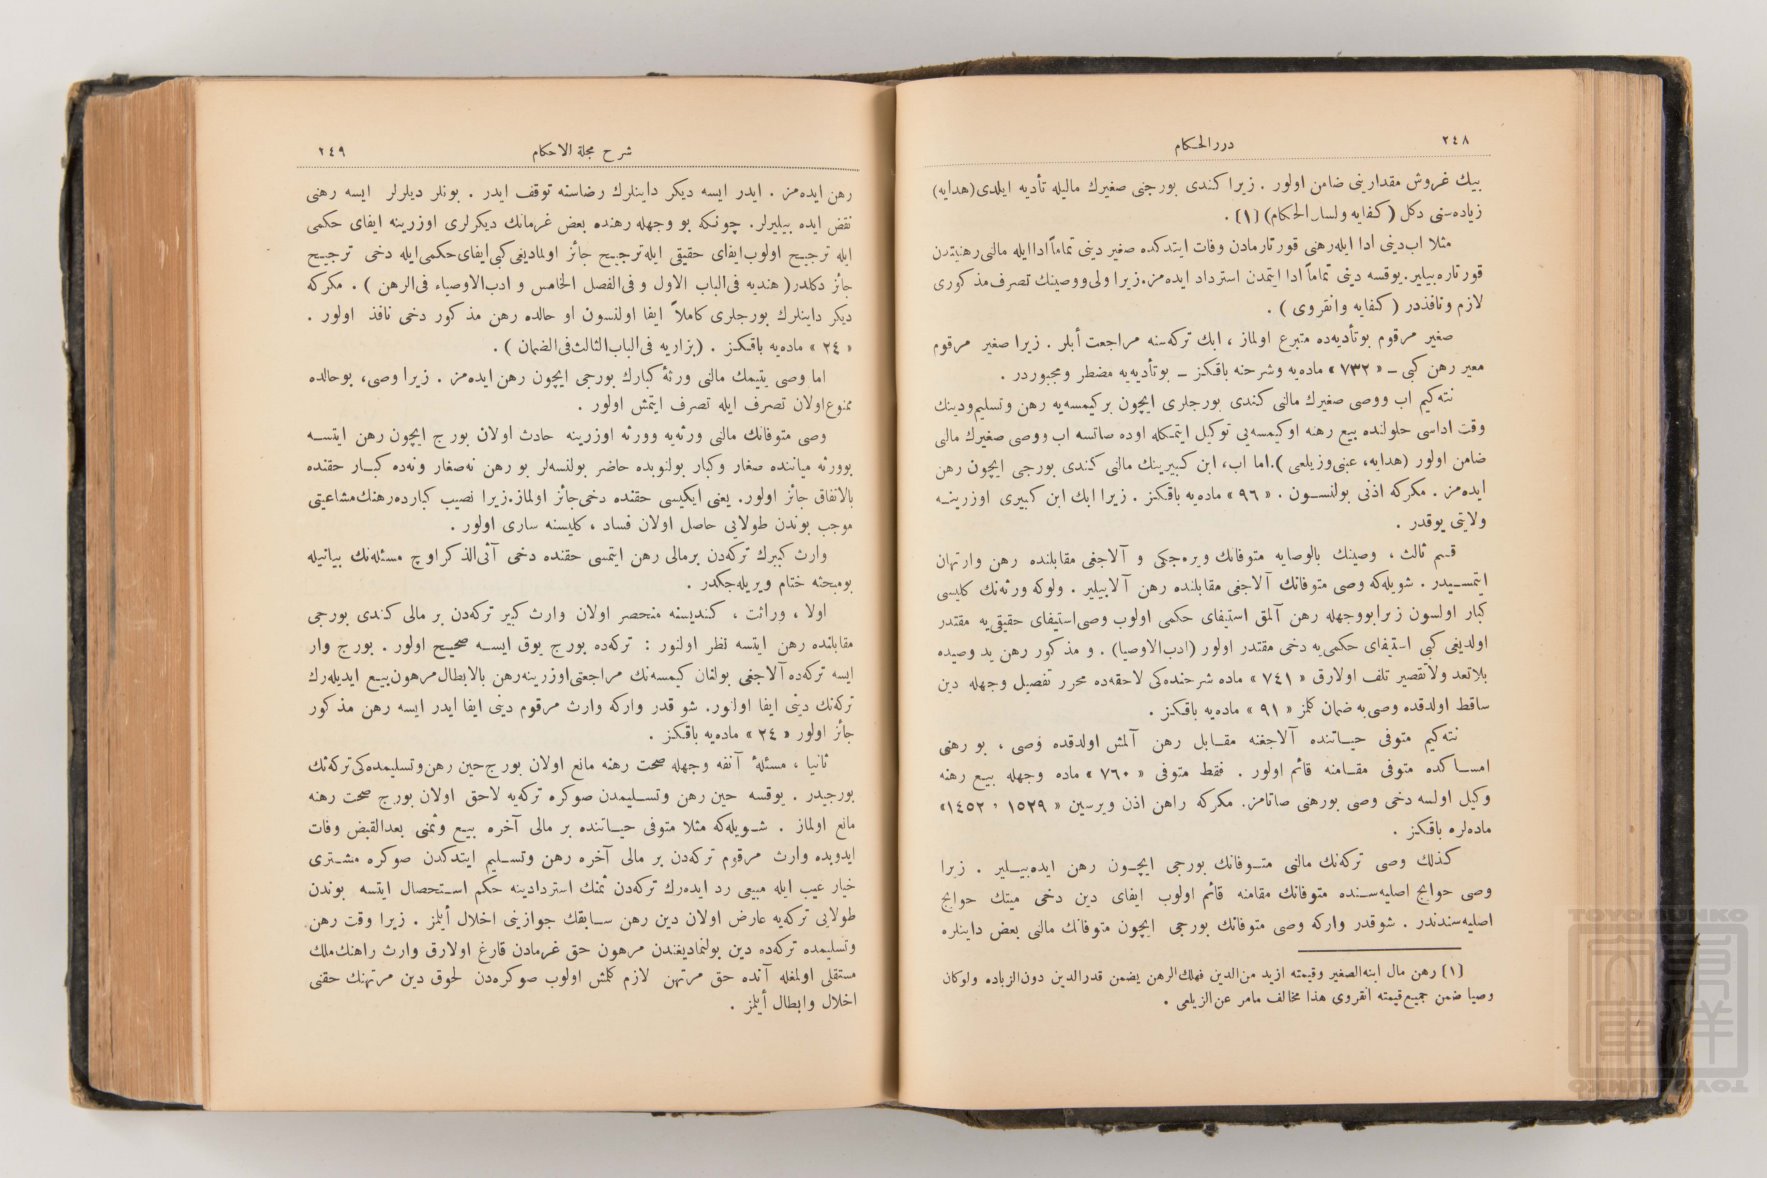 ٢٤٨
دررالحكام
بيك غروش مقدارينى ضامن اولور . زيرا كندى بورجنى صغيرك ماليله تأديه ايلدى (هدايه)
زياده‌سنى دكل (كفايه ولسان‌الحكام) (١) .
مثلا اب‌دينى ادا ايله‌رهنى قورتارمادن وفات ايتدكده صغير دينى تماماً‌ادا‌ايله مالنى‌رهنيتدن
قورتاره‌بيلير.يوقسه دينى تماماً ادا ايتمدن استرداد ايده‌مز.زيرا ولى‌ووصينك تصرف‌مذكورى
لازم ونافذدر ( كفايه وانقروى ) .
صغير مرقوم بوتأديه‌ده متبرع اولماز ، ابك تركه‌سنه مراجعت أيلر . زيرا صغير مرقوم
معير رهن كبى ـ « ٧٣٢ » ماده‌يه وشرحنه باقكز ـ بوتأديه‌يه مضطر ومجبوردر .
نته‌كيم اب ووصى صغيرك مالنى كندى بورجلرى ايچون بركيمسه‌يه رهن وتسليم‌ودينك
وقت اداسى حلولنده بيع رهنه اوكيمسه‌يى توكيل ايتمكله اوده صاتسه اب ووصى صغيرك مالنى
ضامن اولور (هدايه، عينى‌وزيلعى ).اما اب، ابن كبيرينك مالنى كندى بورجى ايچون رهن
ايده‌مز . مكركه اذنى بولنسون . « ٩٦ » ماده‌يه باقكز . زيرا ابك ابن كبيرى اوزرينه
ولايتى يوقدر .
قسم ثالث ، وصينك بالوصايه متوفانك ويره‌جكى و آلاجغى مقابلنده رهن وارتهان
ايتمسيدر . شويله‌كه وصى متوفانك آلاجغى مقابلنده رهن آلابيلير . ولوكه ورثه‌نك كليسى
كبار اولسون زيرابووجهله رهن آلمق استيفاى حكمى اولوب وصى‌استيفاى حقيقى‌يه مقتدر
اولديغى كبى استيفاى حكمى‌يه دخى مقتدر اولور (ادب‌الاوصيا) . و مذكور رهن يد وصيده
بلاتعد ولاتقصير تلف اولارق « ٧٤١ » ماده شرحنده‌كى لاحقه‌ده محرر تفصيل وجهله دين
ساقط اولدقده وصى‌يه ضمان كلمز « ٩١ » ماده‌يه باقكز .
نته‌كيم متوفى حياتنده آلاجغنه مقابل رهن آلمش اولدقده وصى ، بو رهنى
امساكده متوفى مقامنه قائم اولور . فقط متوفى « ٧٦٠ » ماده وجهله بيع رهنه
وكيل اولسه دخى وصى بورهنى صاتامز. مكركه راهن اذن ويرسين « ١٥٢٩ ، ١٤٥٢»
ماده‌لره باقكز .
كذلك وصى تركه‌نك مالنى متوفانك بورجى ايچون رهن ايده‌بيلير . زيرا
وصى حوايج اصليه‌سنده متوفانك مقامنه قائم اولوب ايفاى دين دخى ميتك حوايج
اصليه‌سندندر . شوقدر واركه وصى متوفانك بورجى ايچون متوفانك مالنى بعض داينلره
(١) رهن مال ابنه‌الصغير وقيمته ازيد من‌الدين فهلك‌الرهن يضمن قدرالدين دون‌الزياده ولوكان
وصيا ضمن جميع‌قيمته انقروى هذا مخالف مامر عن‌الزيلعى .
شرح مجلة الاحكام
٢٤٩
رهن ايده‌مز . ايدر ايسه ديكر داينلرك رضاسنه توقف ايدر . بونلر ديلرلر ايسه رهنى
نقض ايده بيليرلر. چونكه بو وجهله رهنده بعض غرمانك ديكرلرى اوزرينه ايفاى حكمى
ايله ترجيح اولوب‌ايفاى حقيقى ايله‌ترجيح جائز اولماديغى‌كبى‌ايفاى‌حكمى‌ايله دخى ترجيح
جائز دكلدر( هنديه فى‌الباب الاول و فى‌الفصل الخامس و ادب‌الاوصياء فى‌الرهن ) . مكركه
ديكر داينلرك بورجلرى كاملاً ايفا اولنسون او حالده رهن مذكور دخى نافذ اولور .
« ٢٤ » ماده‌يه باقكز . (بزازيه فى‌الباب‌الثالث‌فى‌الضمان ) .
اما وصى يتيمك مالنى ورثهٔ كبارك بورجى ايچون رهن ايده‌مز . زيرا وصى، بوحالده
ممنوع‌اولان تصرف ايله تصرف ايتمش اولور .
وصى متوفانك مالنى ورثه‌يه وورثه اوزرينه حادث اولان بورج ايچون رهن ايتسه
بوورثه مياننده صغار وكبار بولنوبده حاضر بولنسه‌لر بو رهن نه‌صغار ونه‌ده كبار حقنده
بالاتفاق جائز اولور. يعنى ايكيسى حقنده دخى‌جائز اولماز.زيرا نصيب كبارده‌رهنك‌مشاعيتى
موجب بوندن طولايى حاصل اولان فساد ، كليسنه سارى اولور .
وارث كبيرك تركه‌دن برمالى رهن ايتمسى حقنده دخى آتى‌الذكراوچ مسئله‌نك بيانيله
بومبحثه ختام ويريله‌جكدر .
اولا ، وراثت ، كنديسنه منحصر اولان وارث كبير تركه‌دن بر مالى كندى بورجى
مقابلنده رهن ايتسه نظر اولنور : تركه‌ده بورج يوق ايسه صحيح اولور . بورج وار
ايسه تركه‌ده آلاجغى بولنان كيمسه‌نك مراجعتى‌اوزرينه‌رهن بالابطال‌مرهون‌بيع ايديله‌رك
تركه‌نك دينى ايفا اولنور. شو قدر واركه وارث مرقوم دينى ايفا ايدر ايسه رهن مذكور
جائز اولور « ٢٤ » ماده‌يه باقكز .
ثانيا ، مسئلهٔ آنفه وجهله صحت رهنه مانع اولان بورج‌حين رهن‌وتسليمده‌كى‌تركه‌نك
بورجيدر . يوقسه حين رهن وتسليمدن صوكره تركه‌يه لاحق اولان بورج صحت رهنه
مانع اولماز . شويله‌كه مثلا متوفى حياتنده بر مالى آخره بيع وثمنى بعدالقبض وفات
ايدوبده وارث مرقوم تركه‌دن بر مالى آخره رهن وتسليم ايتدكدن صوكره مشترى
خيار عيب ايله مبيعى رد ايده‌رك تركه‌دن ثمنك استردادينه حكم استحصال ايتسه بوندن
طولايى تركه‌يه عارض اولان دين رهن سابقك جوازينى اخلال أيلمز . زيرا وقت رهن
وتسليمده تركه‌ده دين بولنماديغندن مرهون حق غرمادن فارغ اولارق وارث راهنك‌ملك
مستقلى اولمغله آنده حق مرتهن لازم كلمش اولوب صوكره‌دن لحوق دين مرتهنك حقنى
اخلال وابطال أيلمز .
TOYO BUNKO